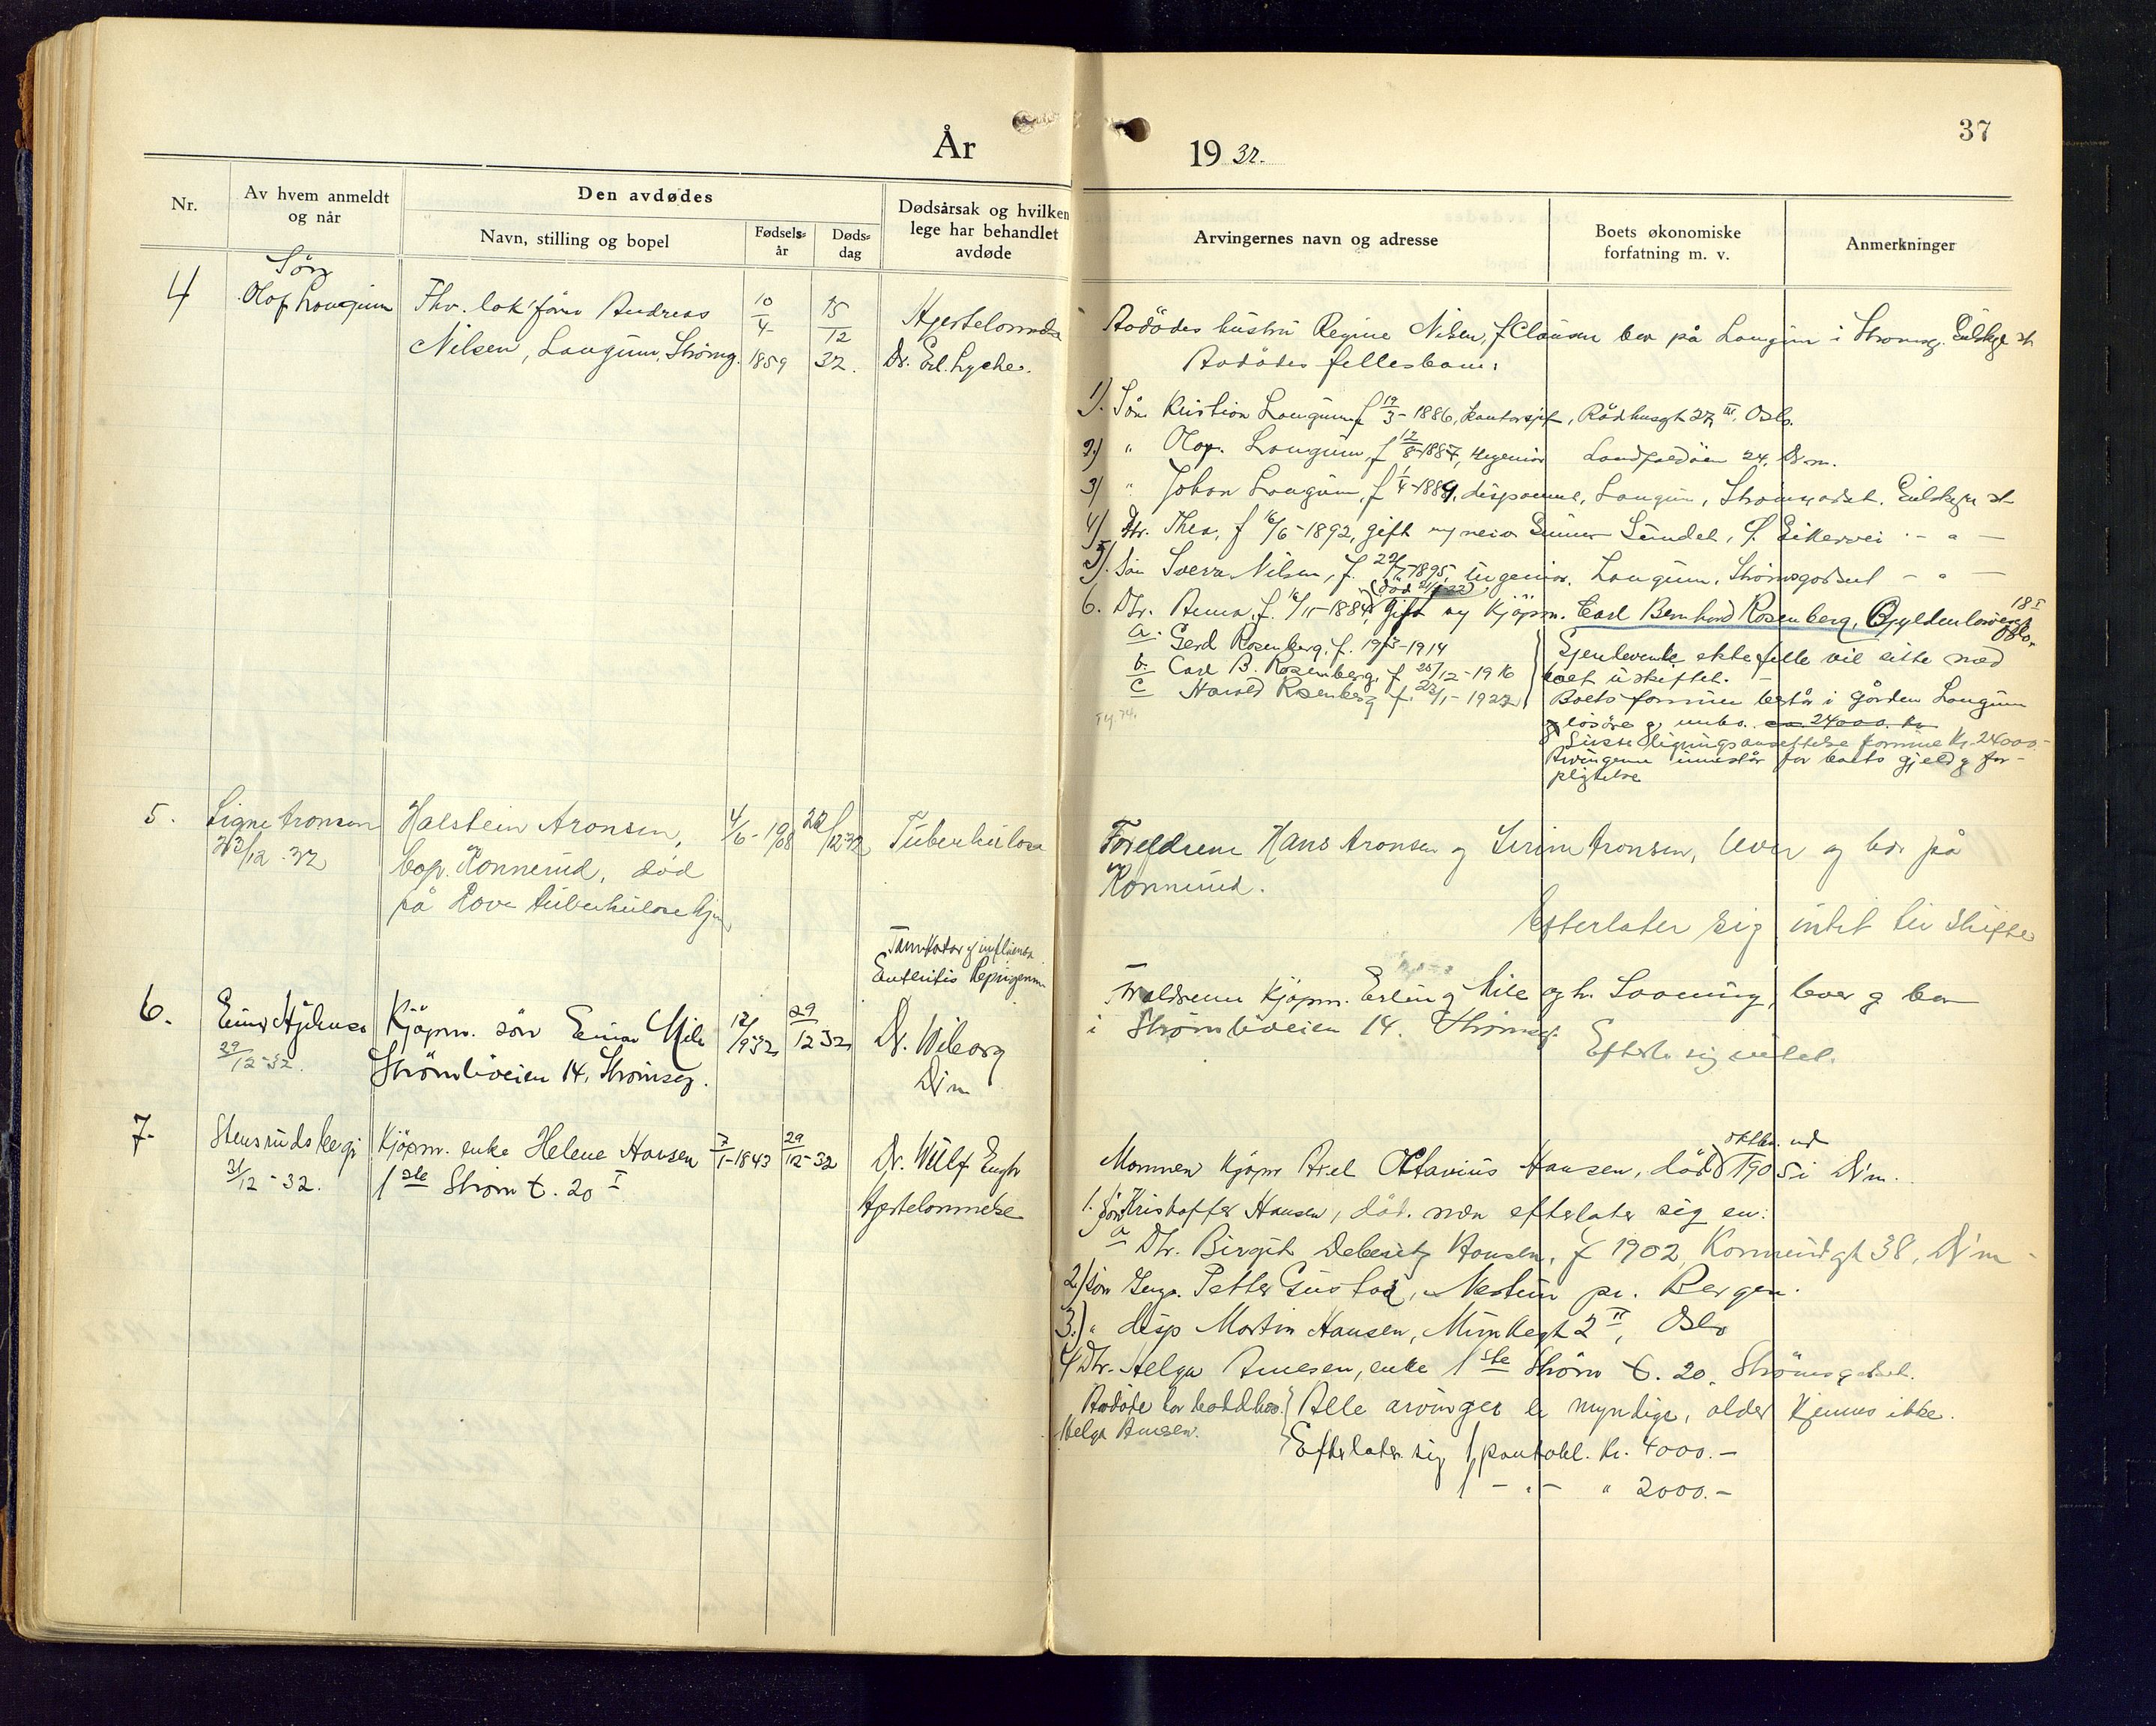 År
19 32.
37
Nr.
Av hvem anmeldt
og når
Den avdødes
Navn, stilling og bopel
Fødsels-
år
Døds-
dag
Dødsårsak og hvilken
lege har behandlet
avdøde
Arvingernes navn og adresse
Boets økonomiske
forfatning m. v.
Anmerkninger
4
Søn
Olaf Langum
Fhv. lok'fører Andreas
Nilsen, Langum, Strømsg.
10/4 1859
15/12 32.
Dr. Erl. Lyche.
Avdödes hustru Regine Nilsen, f. Clausen bor på Langum i Strømsg.
Avdödes fellesbarn:
1). Søn Kristian Langum f 19/3 - 1886, kontorsjef, Rådhusgt 27 III Oslo.
2) " Olaf Langum, f 12/8-1887, ingeniør 24, D.m.
3) " Johan Langum, f 1/4-1889, disponent, Langum, Strømsgodset.
4) Dtr. Thea, f 16/6-1892, gift m/ Gunnar Sundet, Eikervei - " -
5). Søn Sverre Nilsen, f. 1895, ingeniør. Langum, Strømsgodset - " -
6. Dtr. Anna f. 16/11-1884, gift m/ kjøpm. Carl Bernhard Rosenberg, Gyldenløvesgt 18 I Oslo.
a. Gerd Rosenberg, f. 1914
b. Carl B. Rosenberg, f 25/12-1916
c Harald Rosenberg f. 22/1-1922
Gjenlevende ektefelle vil sitte med
boet uskiftet.
Boets formue består i gården Langum
og løsøre og innbo. ca. 24000. kr
Siste ligningsansettelse formue Kr. 24000.-
Arvingerne innestår for boets gjeld og for-
pligtelse
5.
Signe Aronsen
23/12-32
Halstein Aronsen,
bop. Konnerud, död
på Hove tuberkulosehjem
4/6-1908
22/12-32
Tuberkulose
Foreldrene Hans Aronsen og Aronsen, lever og bor på
Konnerud.
Efterlater sig intet til skifte
6.
29/12-32.
Kjøpm. søn Einar Mile
Strömliveien 14, Strömsg.
12/9-32
29/12 32
Tannkatar og influensa
Enteritis
Dr. Wiborg
D.m
Foreldrene Kjøpm. Erling Mile og h. lever og bor
i Strömliveien 14. Strømsg.
Efterl. sig intet.
7.
31/12-32.
Kjøpm. enke Helene Hansen
1ste Strøm t. 20 I
7/1-1843
29/12-32
Dr. Wülf
Hjertelammelse
Mannen Kjøpm Axel Oktavius Hansen, död 1905 i D'm.
1. Søn Kristoffer Hansen, död. men efterlater sig en:
a Dtr. Birgit Debesitz Hansen, f 1902, Konnerudgt 38, D'm
2) Søn Petter Gustav, Nestun pr. Bergen.
3.) " disp Martin Hansen, Munkegt 2 II, Oslo
4 Dtr. Helga Arnesen, enke 1ste Strøm t. 20. Strömsgodset.
Avdöde har bodd hos
Helga Arnesen.
Alle arvinger er myndige, alder kjennes ikke.
Efterlater sig 1 pantobl. kr. 4000.-
1 - " - " 2000.-